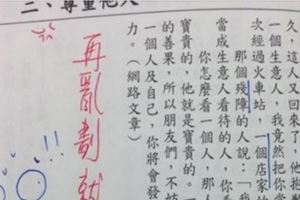 二、尊重他人
久，這人又回來了，他抱歉
一個生意人，我竟然把你當
次經過火車站，一個店家
那個殘障的人說：「我
當成生意人看待的人，你
你怎麼看一個人，那人
寶貴的，他就是寶貴的。一
的善果，所以朋友們，不妨
一個人及自己，你將會發
力。（網路文章）
再亂劃就
!!